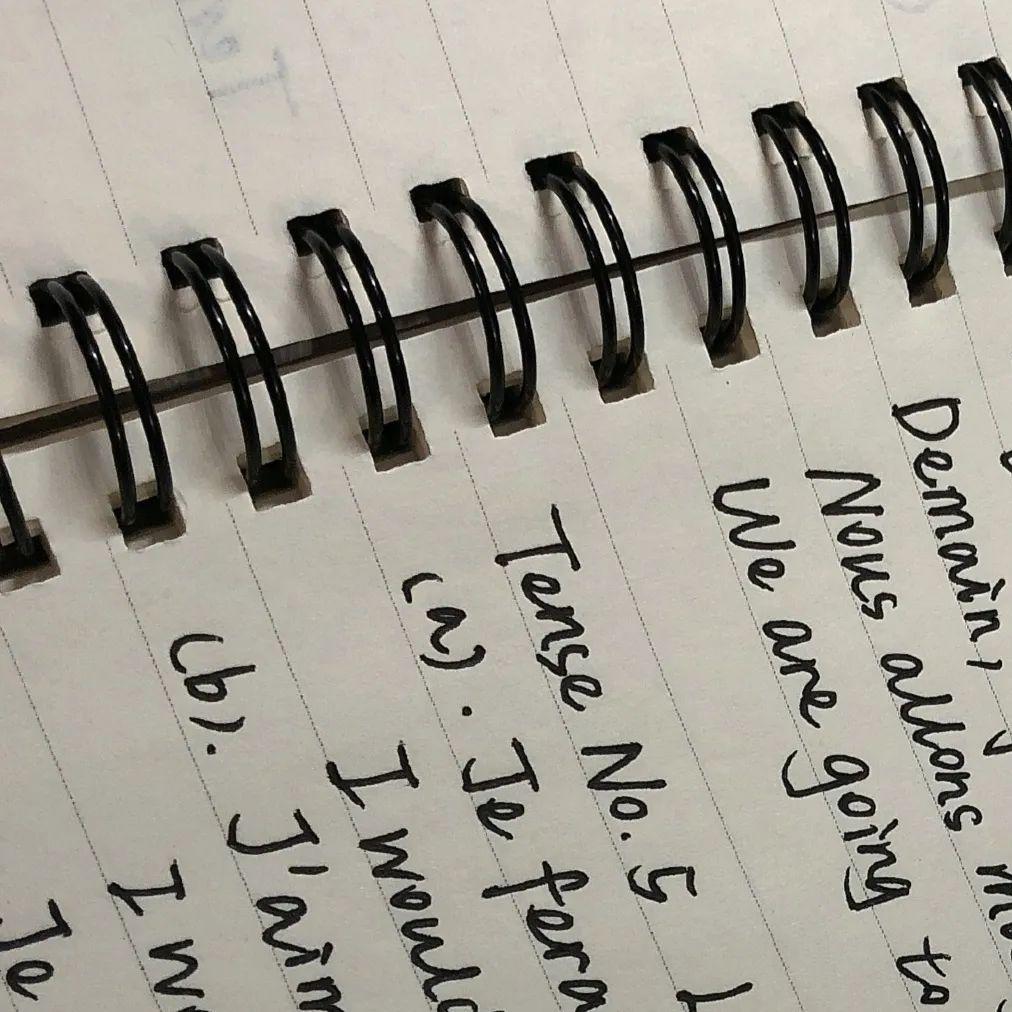 Demain,
Nous allons
We are going to
Tense No. 5
(a). Je fera
I would
(b). J'aim
I w
Je